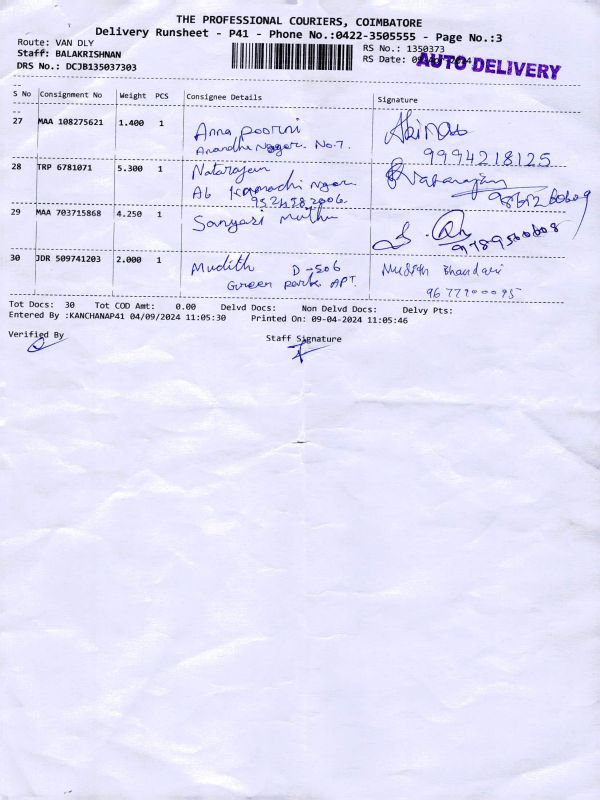 THE PROFESSIONAL COURIERS, COIMBATORE
Delivery Runsheet - P41 - Phone No.:0422-3505555 - Page No.:3
Route: VAN DLY
Staff: BALAKRISHNAN
DRS No.: DCJB135037303
RS No.: 1350373
RS Date:
AUTO DELIVERY
S No Consignment No Weight PCS Consignee Details Signature
27 MAA 108275621 1.400 1 Anna poorni
Anandha Nagar. No.7.
9994218125
28 TRP 6781071 5.300 1 Natarajan Natarajan
A6 Kamachi Nagar
29 MAA 703715868 4.250 1 Sanyasi Muthu
9789500608
30 JDR 509741203 2.000 1 Mudith D-506 Mudith Bhandari
Green park APT.
Tot Docs: 30 Tot COD Amt: 0.00 Delvd Docs: Non Delvd Docs: Delvy Pts:
Entered By :KANCHANAP41 04/09/2024 11:05:30 Printed On: 09-04-2024 11:05:46
Verified By
Staff Signature